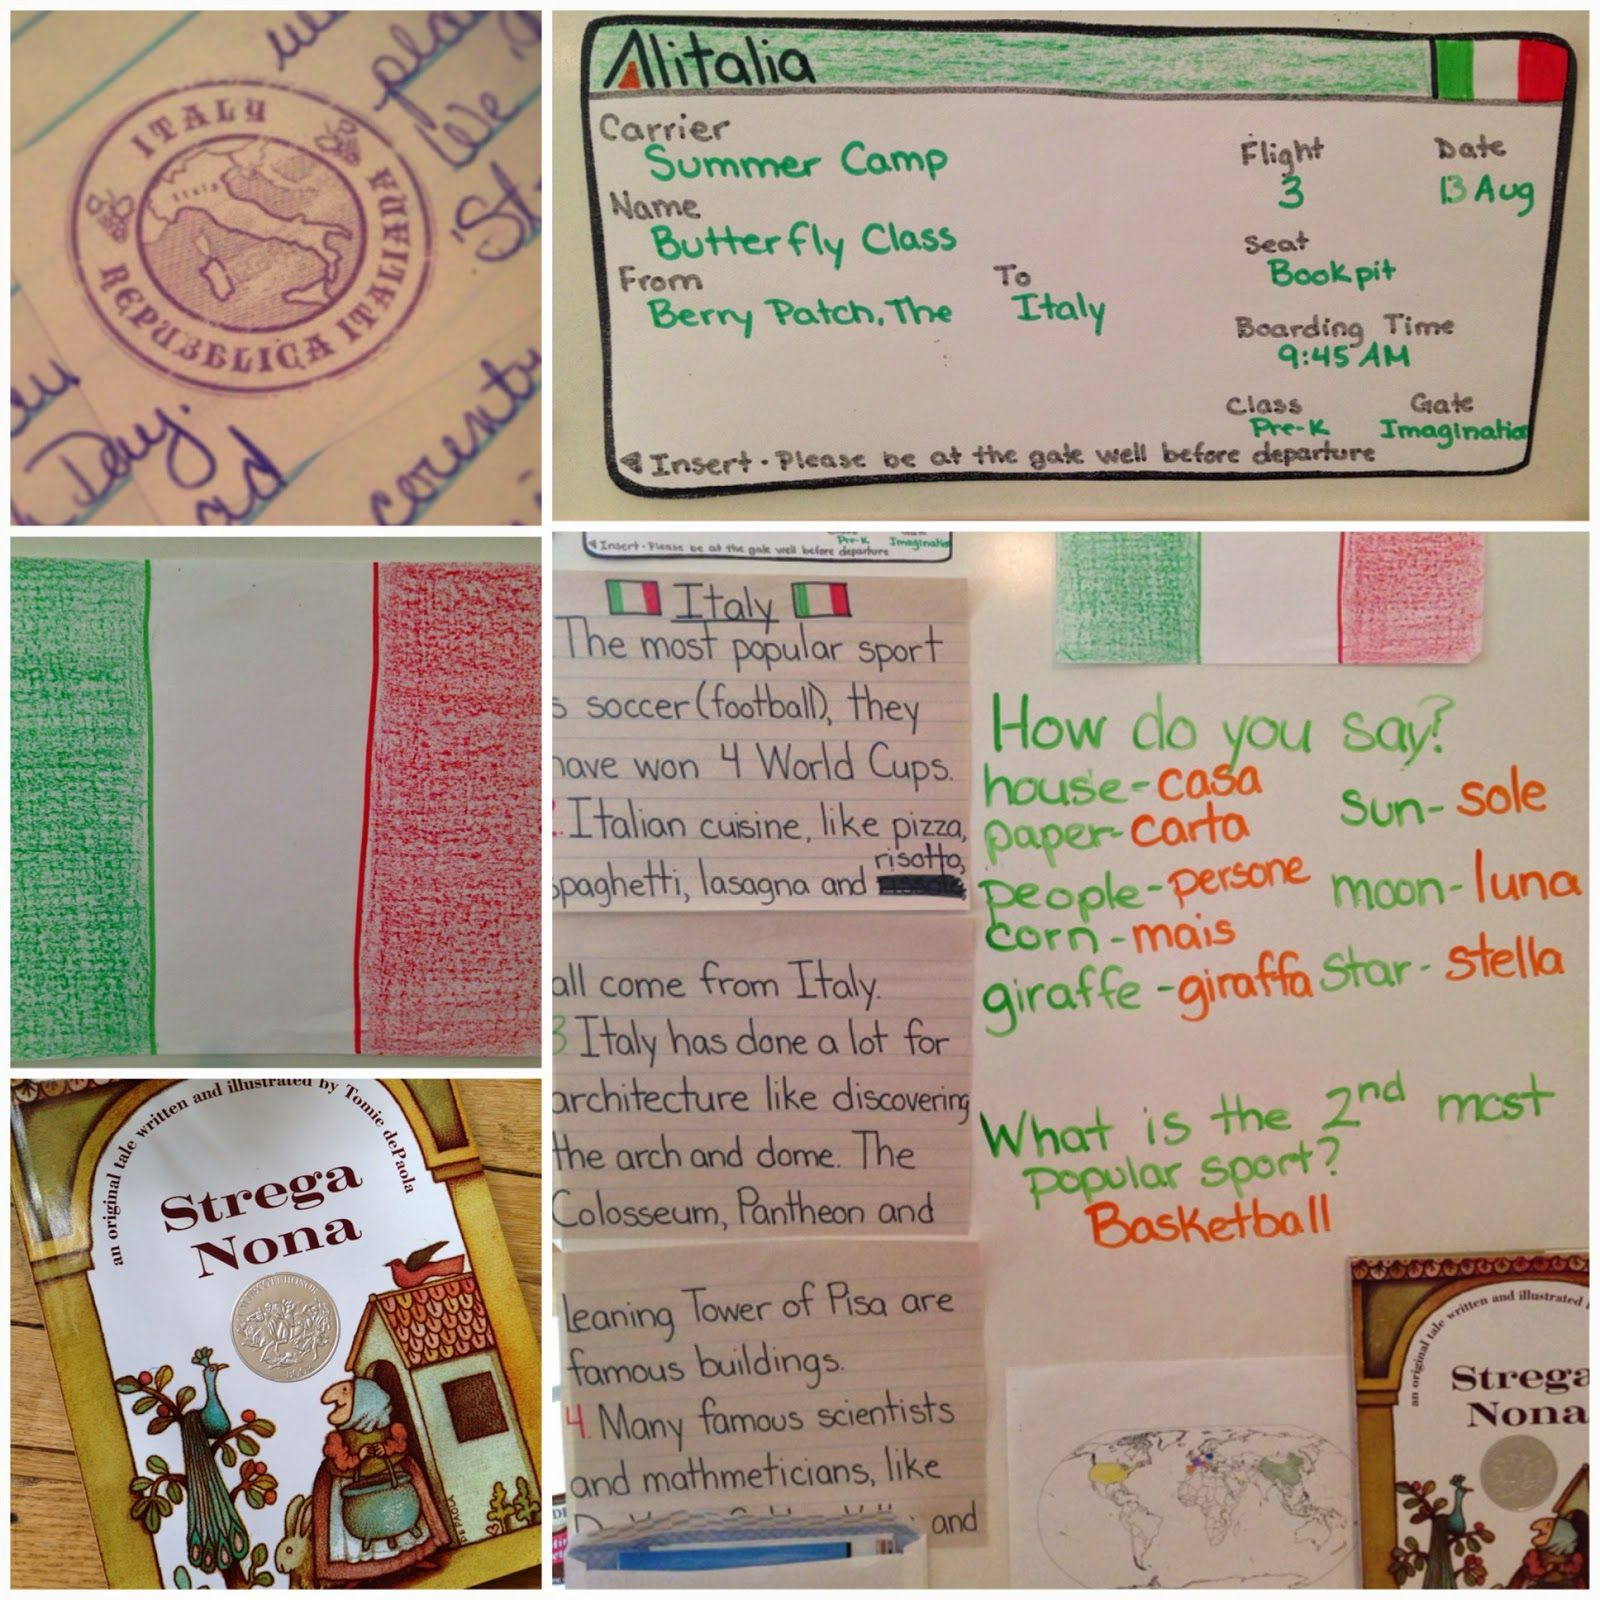 ITALY
REPUBBLICA ITALIANA
Italy
We
Day.
Alitalia
Carrier
Summer Camp
Name
Butterfly Class
From
Berry Patch, The
To
Italy
Flight
3
Date
13 Aug
Seat
Bookpit
Boarding Time
9:45 AM
Class
Pre-K
Gate
Imagination
Insert · Please be at the gate well before departure
an original tale written and illustrated by Tomie dePaola
Strega
Nona
CALDECOTT HONOR
BOOK
DEPAOLA
Pre-K Imagination
Insert · Please be at the gate well before departure
Italy
The most popular sport
s soccer (football), they
have won 4 World Cups.
2. Italian cuisine, like pizza,
risotto,
spaghetti, lasagna and
all come from Italy.
3. Italy has done a lot for
architecture like discovering
the arch and dome. The
Colosseum, Pantheon and
leaning Tower of Pisa are
famous buildings.
4. Many famous scientists
and mathmeticians, like
and
How do you say?
house - casa
paper - carta
people - persone
corn - mais
giraffe - giraffa
Sun - sole
moon - luna
Star - stella
What is the 2nd most
popular sport?
Basketball
an original tale written and illustrated
Strega
Nona